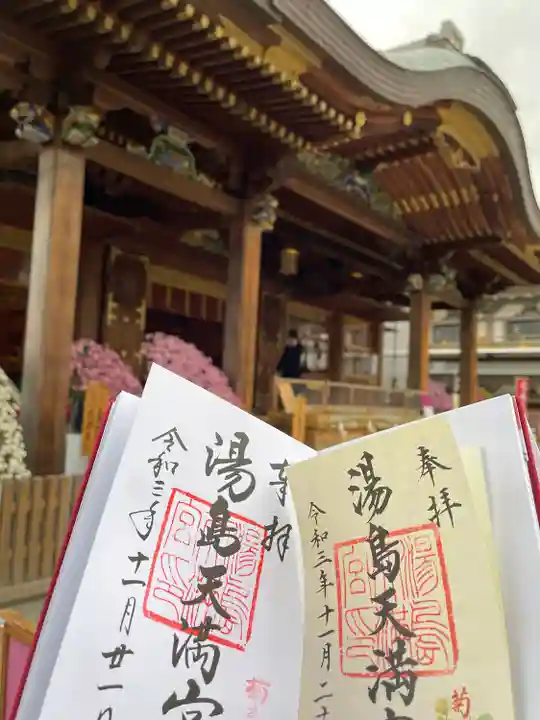 奉拝
湯島天満宮
令和三年十一月廿一日
奉拝
湯島天満宮
令和三年十一月二十
菊